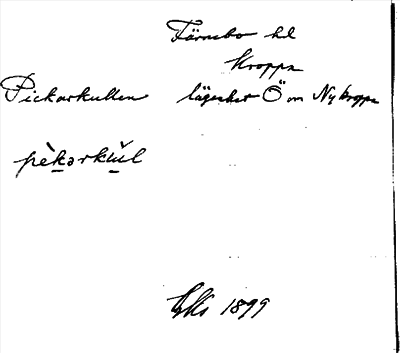 Färnebo hd
Kroppa
Pickarkullen lägenhet Ö om Nykroppa
pèkərkùl
1899